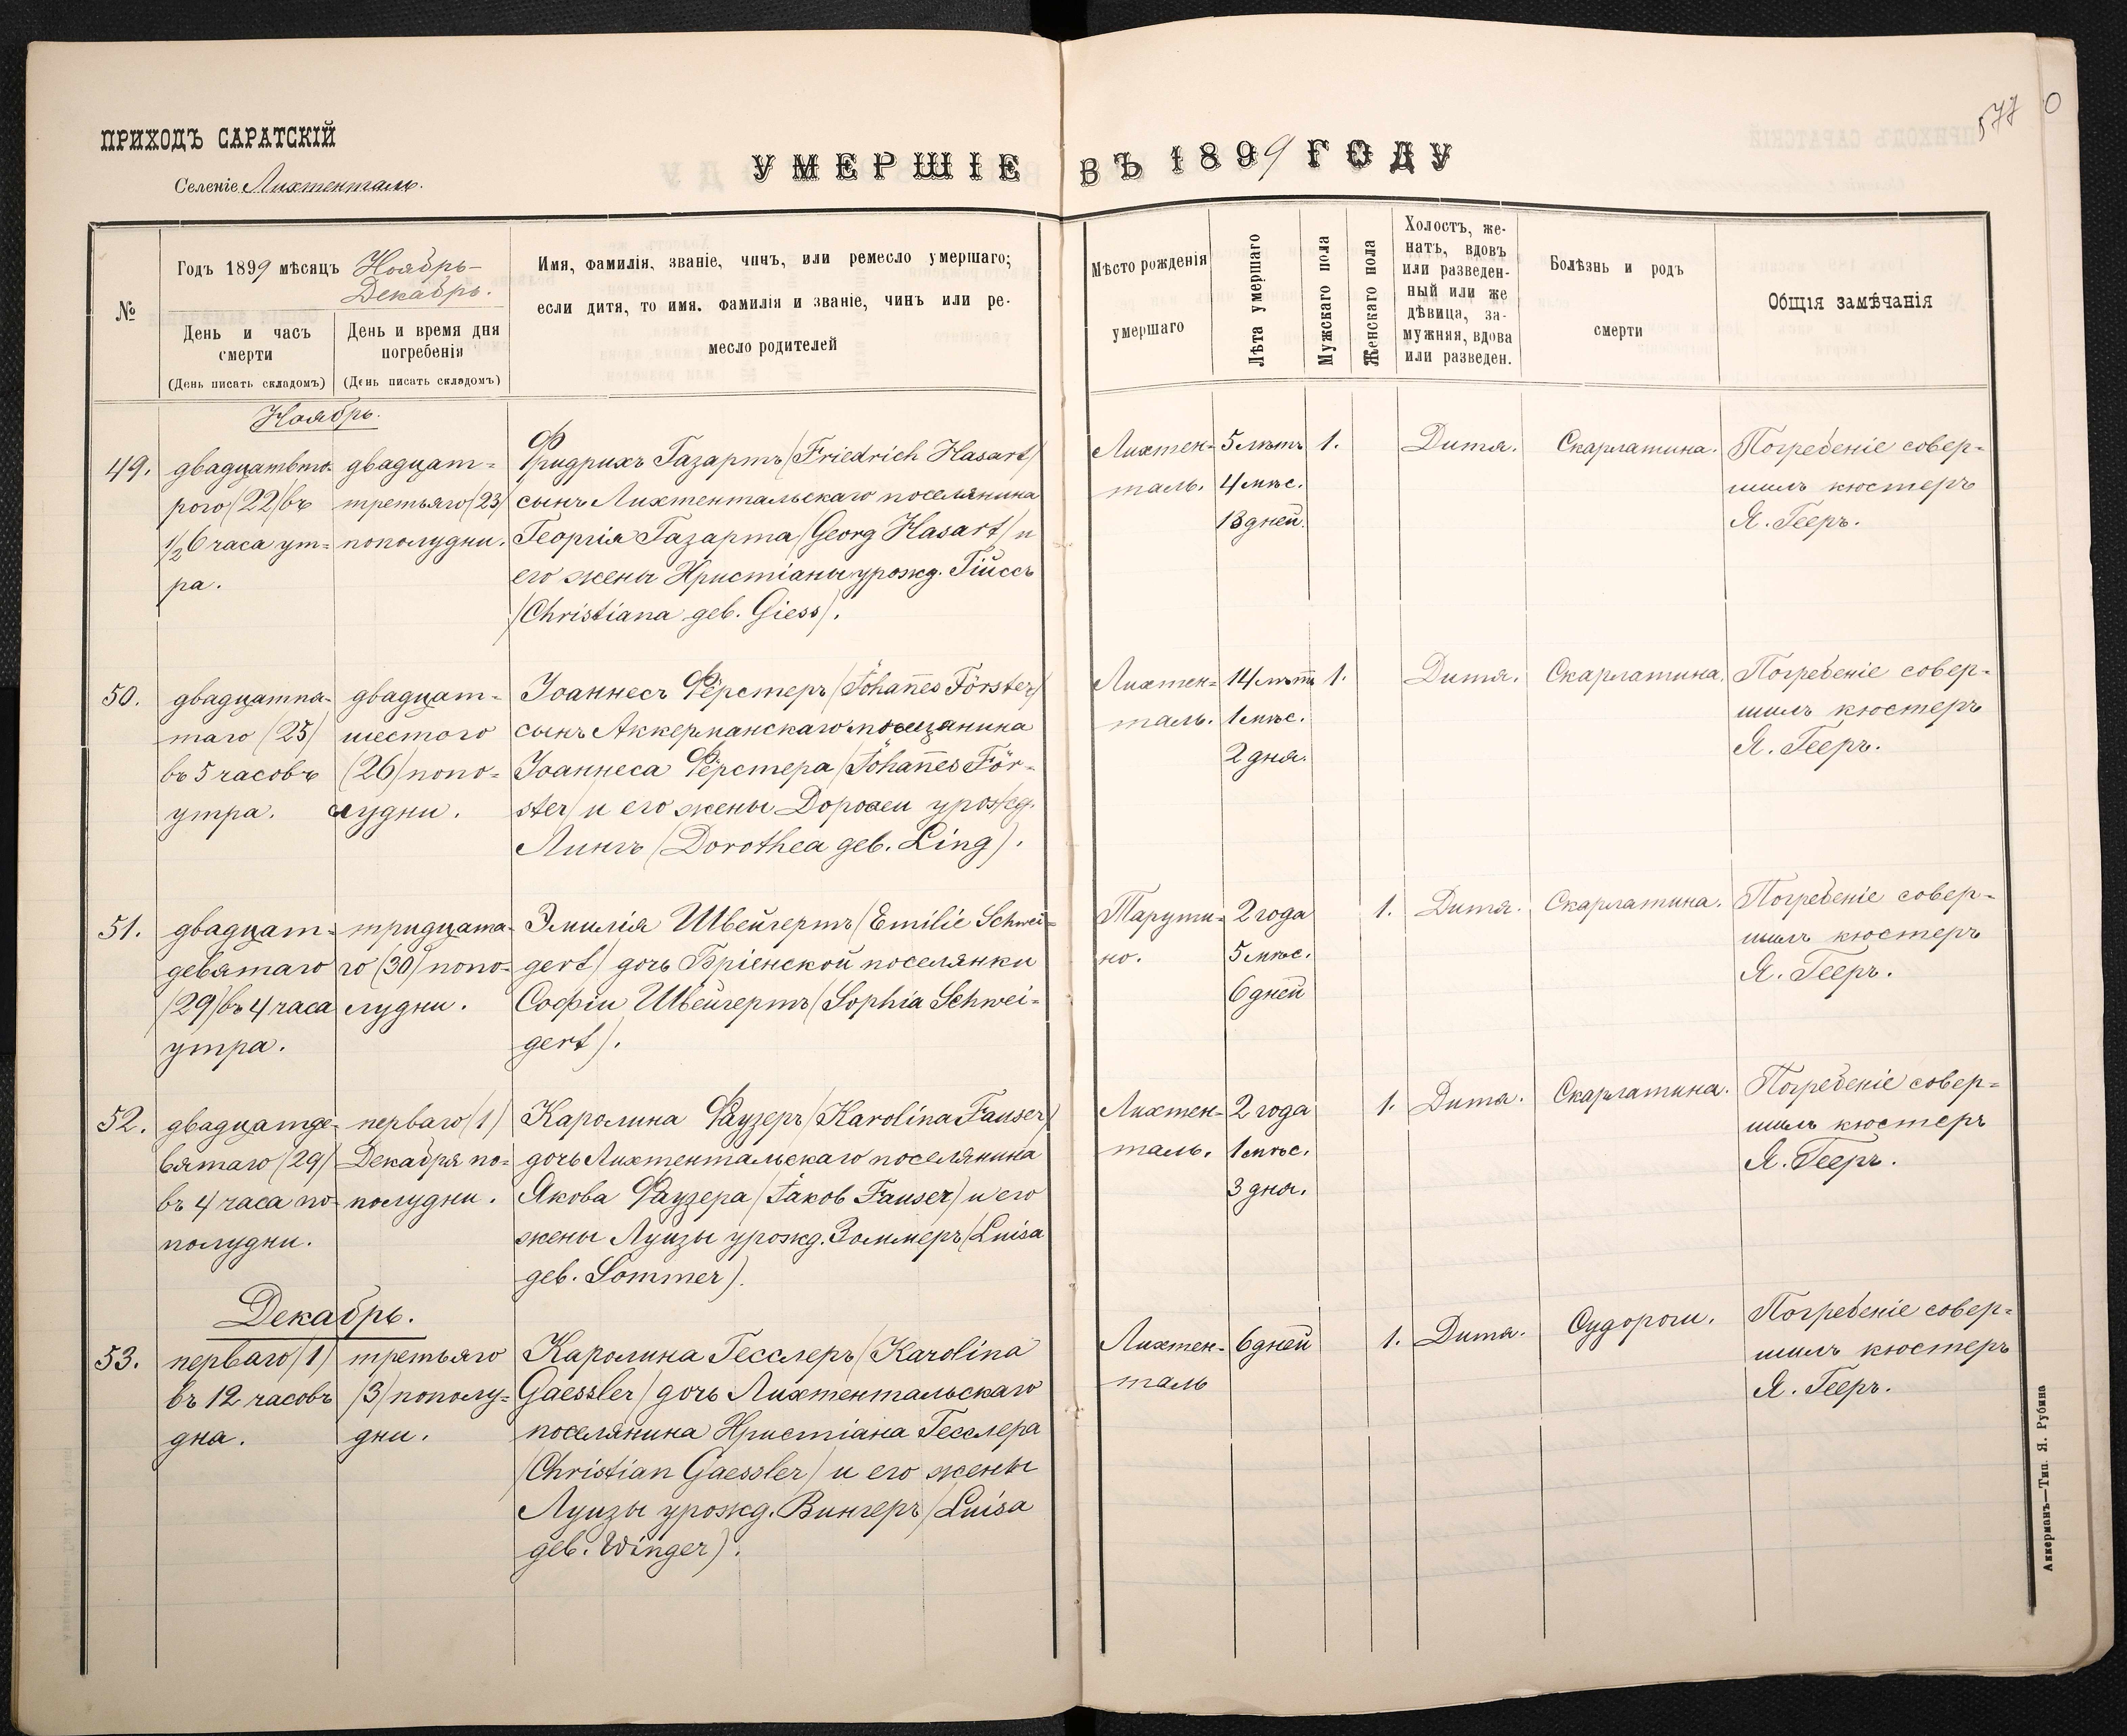 577
0
ПРИХОДЪ САРАТСКІЙ
Селеніе Лихтенталь.
УМЕРШІЕ ВЪ 1899 ГОДУ
№
Годъ 1899 мѣсяцъ Ноябрь-
Декабрь.
День и часъ
смерти
(День писать складомъ)
День и время дня
погребенія
(День писать складомъ)
Имя, фамилія, званіе, чинъ, или ремесло умершаго;
если дитя, то имя. фамилія и званіе, чинъ или ре-
месло родителей
Мѣсто рожденія
умершаго
Лѣта умершаго
Мужскаго пола
Женскаго пола
Холостъ, же-
натъ, вдовъ
или разведен-
ный или же
дѣвица, за-
мужняя, вдова
или разведен.
Болѣзнь и родъ
смерти
Общія замѣчанія
Ноябрь.
49.
двадцатвто-
рого (22) въ
1/2 6 часа ут-
ра.
двадцат-
третьяго (23)
пополудни.
Фридрихъ Газартъ (Friedrich Hasart)
сынъ Лихтентальскаго поселянина
Георгія Газарта (Georg Hasart) и
его жены Христіаны урожд. Гійссъ
(Christiana geb. Giess).
Лихтен-
таль.
5 лѣтъ
4 мѣс.
13 дней.
1.
Дитя.
Скарлатина.
Погребеніе совер-
шилъ кюстеръ
Я. Гееръ.
50.
двадцатпя-
таго (25)
въ 5 часовъ
утра.
двадцат-
шестого
(26) попо-
лудни.
Іоаннесъ Фёрстеръ (Johannes Förster)
сынъ Аккерманскаго мѣщанина
Іоаннеса Фёрстера (Johannes För-
ster) и его жены Доротеи урожд.
Лингъ (Dorothea geb. Ling).
Лихтен-
таль.
14 лѣтъ
1 мѣс.
2 дня.
1.
Дитя.
Скарлатина.
Погребеніе совер-
шилъ кюстеръ
Я. Гееръ.
51.
двадцат-
девятаго
(29) въ 4 часа
утра.
тридцата-
го (30) попо-
лудни.
Эмилія Швейгертъ (Emilie Schwei-
gert) дочь Бріенской поселянки
Софіи Швейгертъ (Sophia Schwei-
gert).
Тарути-
но.
2 года
5 мѣс.
6 дней
1.
Дитя.
Скарлатина.
Погребеніе совер-
шилъ кюстеръ
Я. Гееръ.
52.
двадцатде-
вятаго (29)
въ 4 часа по-
полудни.
перваго (1)
Декабря по-
полудни.
Каролина Фаузеръ (Karolina Fauser)
дочь Лихтентальскаго поселянина
Якова Фаузера (Jakob Fauser) и его
жены Луизы урожд. Зоммеръ (Luisa
geb. Sommer).
Лихтен-
таль.
2 года
1 мѣс.
3 дня.
1.
Дитя.
Скарлатина.
Погребеніе совер-
шилъ кюстеръ
Я. Гееръ.
Декабрь.
53.
перваго (1)
въ 12 часовъ
дна.
третьяго
(3) пополу-
дни.
Каролина Гесслеръ (Karolina
Gaessler) дочь Лихтентальскаго
поселянина Христіана Гесслера
(Christian Gaessler) и его жены
Луизы урожд. Вингеръ (Luisa
geb. Winger).
Лихтен-
таль
6 дней
1.
Дитя.
Судороги.
Погребеніе совер-
шилъ кюстеръ
Я. Гееръ.
Аккерманъ—Тип. Я. Рубина